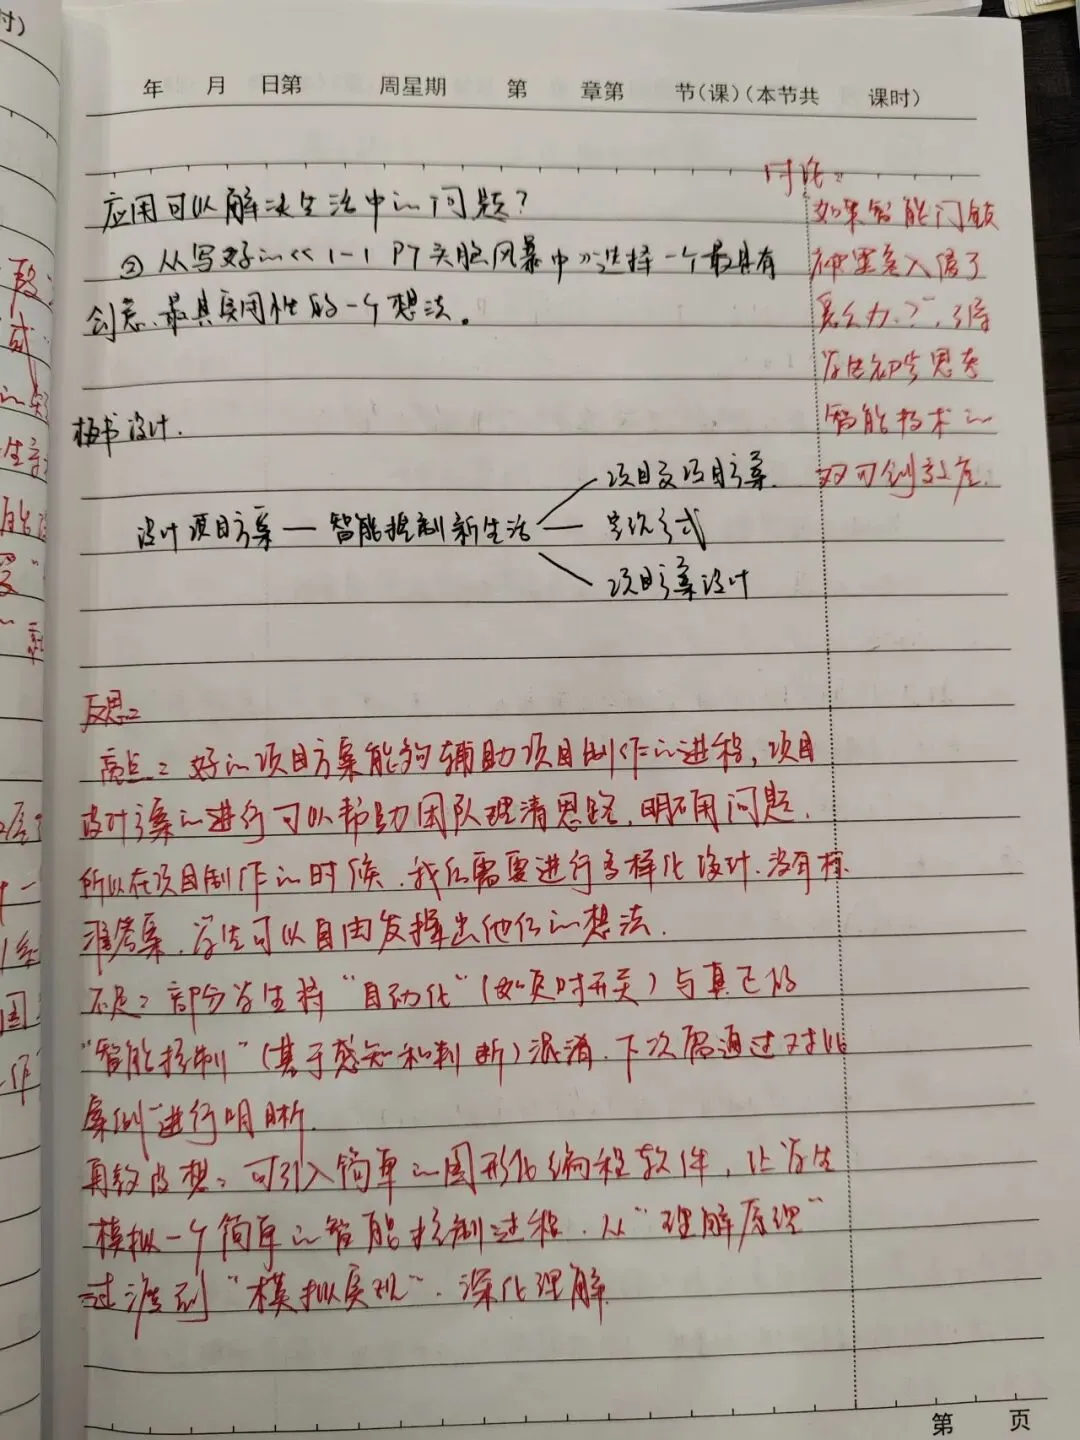 年 月 日第 周星期 第 章第 节(课)(本节共 课时)
应用可以解决生活中的问题?
② 从写好的《1-1 PT头脑风暴中》选择一个最具有
创意、最具实用性的一个想法。
板书设计.
设计项目方案 — 智能控制新生活
项目及项目方案.
实现方式
项目方案设计
讨论:
如果智能门锁
被黑客入侵了
怎么办?",引导
学生初步思考
智能技术的
双
反思:
亮点:好的项目方案能够辅助项目制作的进程,项目
设计方案的进行可以帮助团队理清思路,明确问题.
所以在项目制作的时候.我们需要进行多样化设计.没有标
准答案.学生可以自由发挥出他们的想法.
不足:部分学生将"自动化"(如定时开关)与真正的
"智能控制"(基于感知和判断)混淆.下次需通过对比
案例进行明晰.
再教设想:可引入简单的图形化编程软件,让学生
模拟一个简单的智能控制过程.从"理解原理"
过渡到"模拟实现".深化理解.
第 页